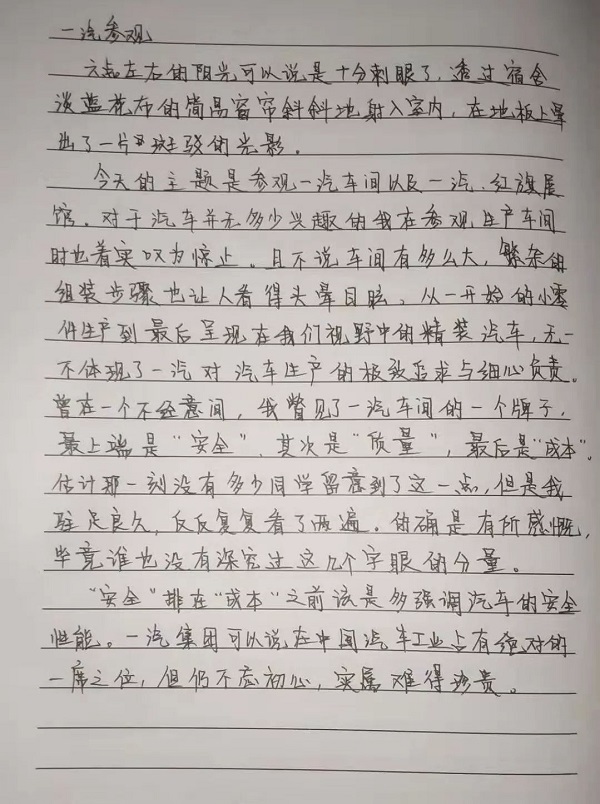 一汽参观
六点左右的阳光可以说是十分刺眼了，透过宿舍
淡蓝花布的简易窗帘斜斜地射入室内，在地板上晕
出了一片斑驳的光影。
今天的主题是参观一汽车间以及一汽.红旗展
馆。对于汽车并无多少兴趣的我在参观生产车间
时也着实叹为惊止。且不说车间有多么大，繁杂的
组装步骤也让人看得头晕目眩、从一开始的小零
件生产到最后呈现在我们视野中的精装汽车，无一
不体现了一汽对汽车生产的极致追求与细心负责。
曾在一个不经意间，我瞥见了一汽车间的一个牌子，
最上端是“安全”，其次是“质量”，最后是“成本”。
估计那一刻没有多少同学留意到了这一点，但是我
驻足良久，反反复复看了两遍。的确是有所感慨，
毕竟谁也没有深究过这几个字眼的分量。
“安全”排在“成本”之前该是多强调汽车的安全
性能。一汽集团可以说在中国汽车工业占有绝对的
一席之位，但仍不忘初心，实属难得珍贵。